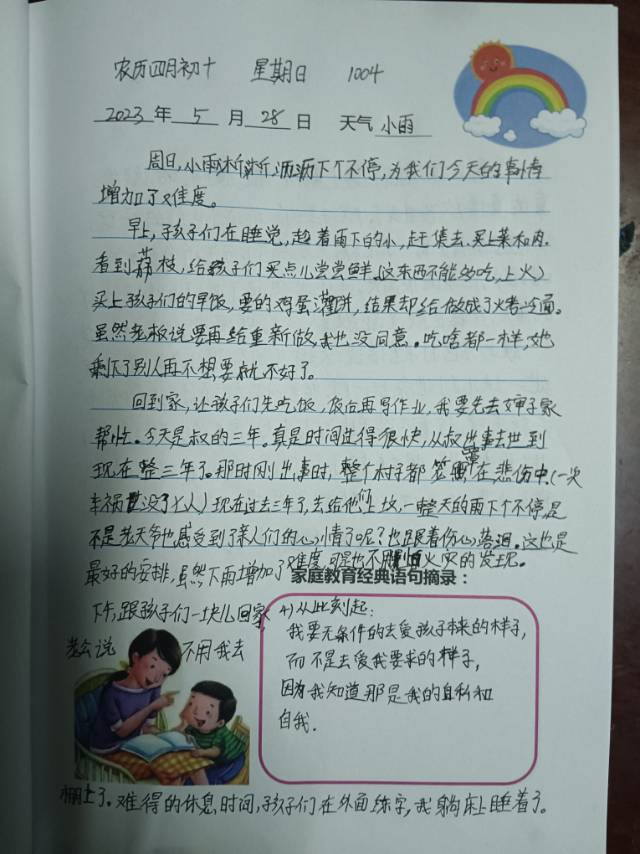 农历四月初十 星期日 1004
2023年 5月 28日 天气 小雨
周日,小雨淅淅沥沥下个不停,为我们今天的事情
增加了难度。
早上,孩子们在睡觉,趁着雨下的小,赶集去买上菜和肉。
看到荔枝,给孩子们买点儿尝尝鲜。(这东西不能多吃,上火)
买上孩子们的早饭,要的鸡蛋灌饼,结果却给做成了烤冷面。
虽然老板说要再给重新做,我也没同意。吃啥都一样,她
剩下了别人再不想要就不好了。
回到家,让孩子们先吃饭,饭后再写作业,我要先去婶子家
帮忙。今天是叔的三年。真是时间过得很快,从叔出事去世到
现在整三年了。那时刚出事时,整个村子都笼罩在悲伤中。(一次
车祸世没了七人)现在过去三年了,去给他们上坟,一整天的雨下个不停,是
不是老天爷也感受到了亲人们的心情了呢?也跟着伤心落泪。这也是
最好的安排,虽然下雨增加了难度,可是也不用怕火灾的发现。
家庭教育经典语句摘录:
下午,跟孩子们一块儿回家,
老公说 不用我去
4)从此刻起:
我要无条件的去爱孩子本来的样子,
而不是去爱我要求的样子,
因为我知道那是我的自私和
自我.
棚上了。难得的休息时间,孩子们在外面练字,我躺床上睡着了。